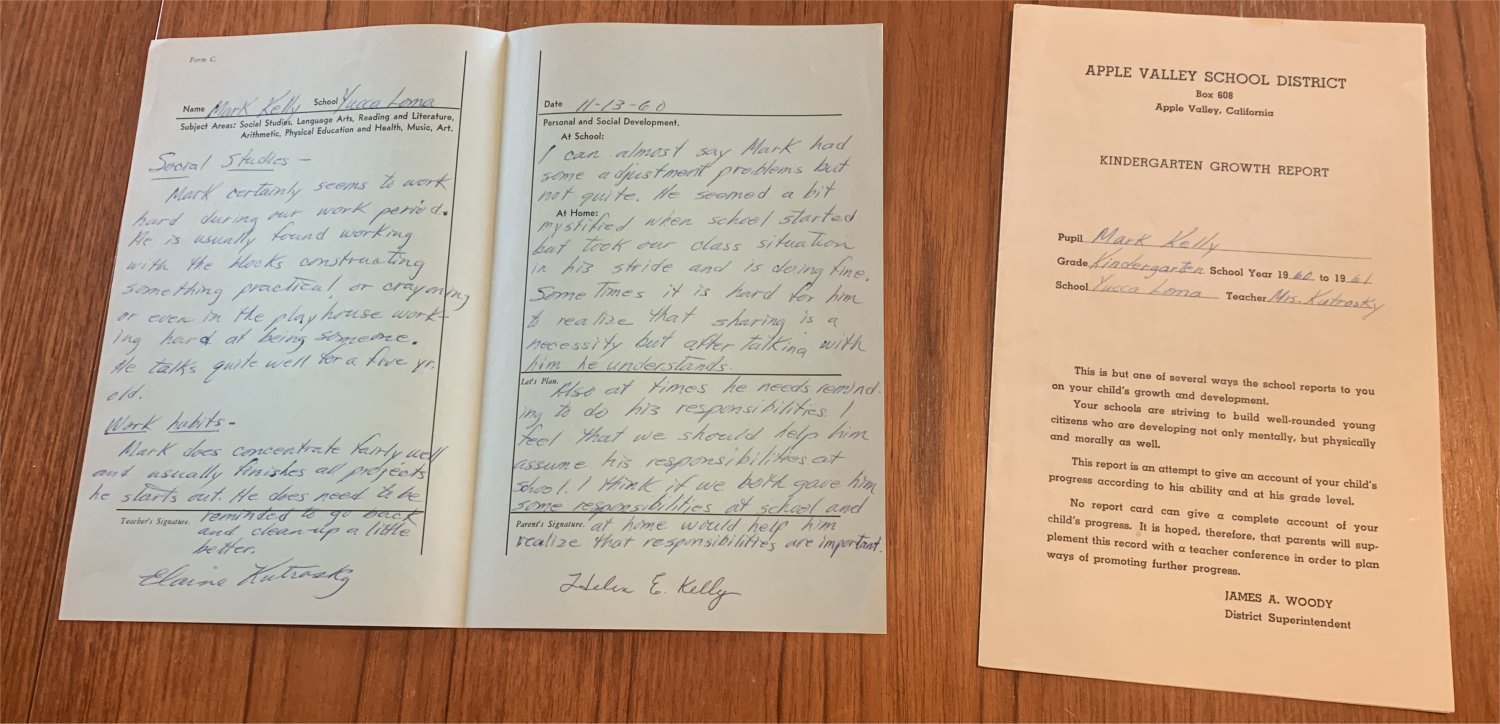 Form C.
Name Mark Kelly School Yucca Loma
Subject Areas: Social Studies, Language Arts, Reading and Literature,
Arithmetic, Physical Education and Health, Music, Art.
Social Studies -
Mark certainly seems to work
hard during our work period.
He is usually found working
with the blocks constructing
something practical, or crayoning
or even in the playhouse work-
ing hard at being someone.
He talks quite well for a five yr.
old.
Work habits -
Mark does concentrate fairly well
and usually finishes all projects
he starts out. He does need to be
Teacher's Signature. reminded to go back
and clean up a little
better.
Elaine Kutrosky
Date 11-13-60
Personal and Social Development.
At School:
I can almost say Mark had
some adjustment problems but
not quite. He seemed a bit
At Home:
mystified when school started
but took our class situation
in his stride and is doing fine.
Some Times it is hard for him
to realize that sharing is a
necessity but after talking with
him he understands.
Let's Plan.
Also at times he needs remind-
ing to do his responsibilities. I
feel that we should help him
assume his responsibilities at
school. I think if we both gave him
some responsibilities at school and
Parent's Signature. at home would help him
realize that responsibilities are important.
Helen E. Kelly
APPLE VALLEY SCHOOL DISTRICT
Box 608
Apple Valley, California
KINDERGARTEN GROWTH REPORT
Pupil Mark Kelly
Grade Kindergarten School Year 1960 to 1961
School Yucca Loma Teacher Mrs. Kutrosky
This is but one of several ways the school reports to you
on your child's growth and development.
Your schools are striving to build well-rounded young
citizens who are developing not only mentally, but physically
and morally as well.
This report is an attempt to give an account of your child's
progress according to his ability and at his grade level.
No report card can give a complete account of your
child's progress. It is hoped, therefore, that parents will sup-
plement this record with a teacher conference in order to plan
ways of promoting further progress.
JAMES A. WOODY
District Superintendent